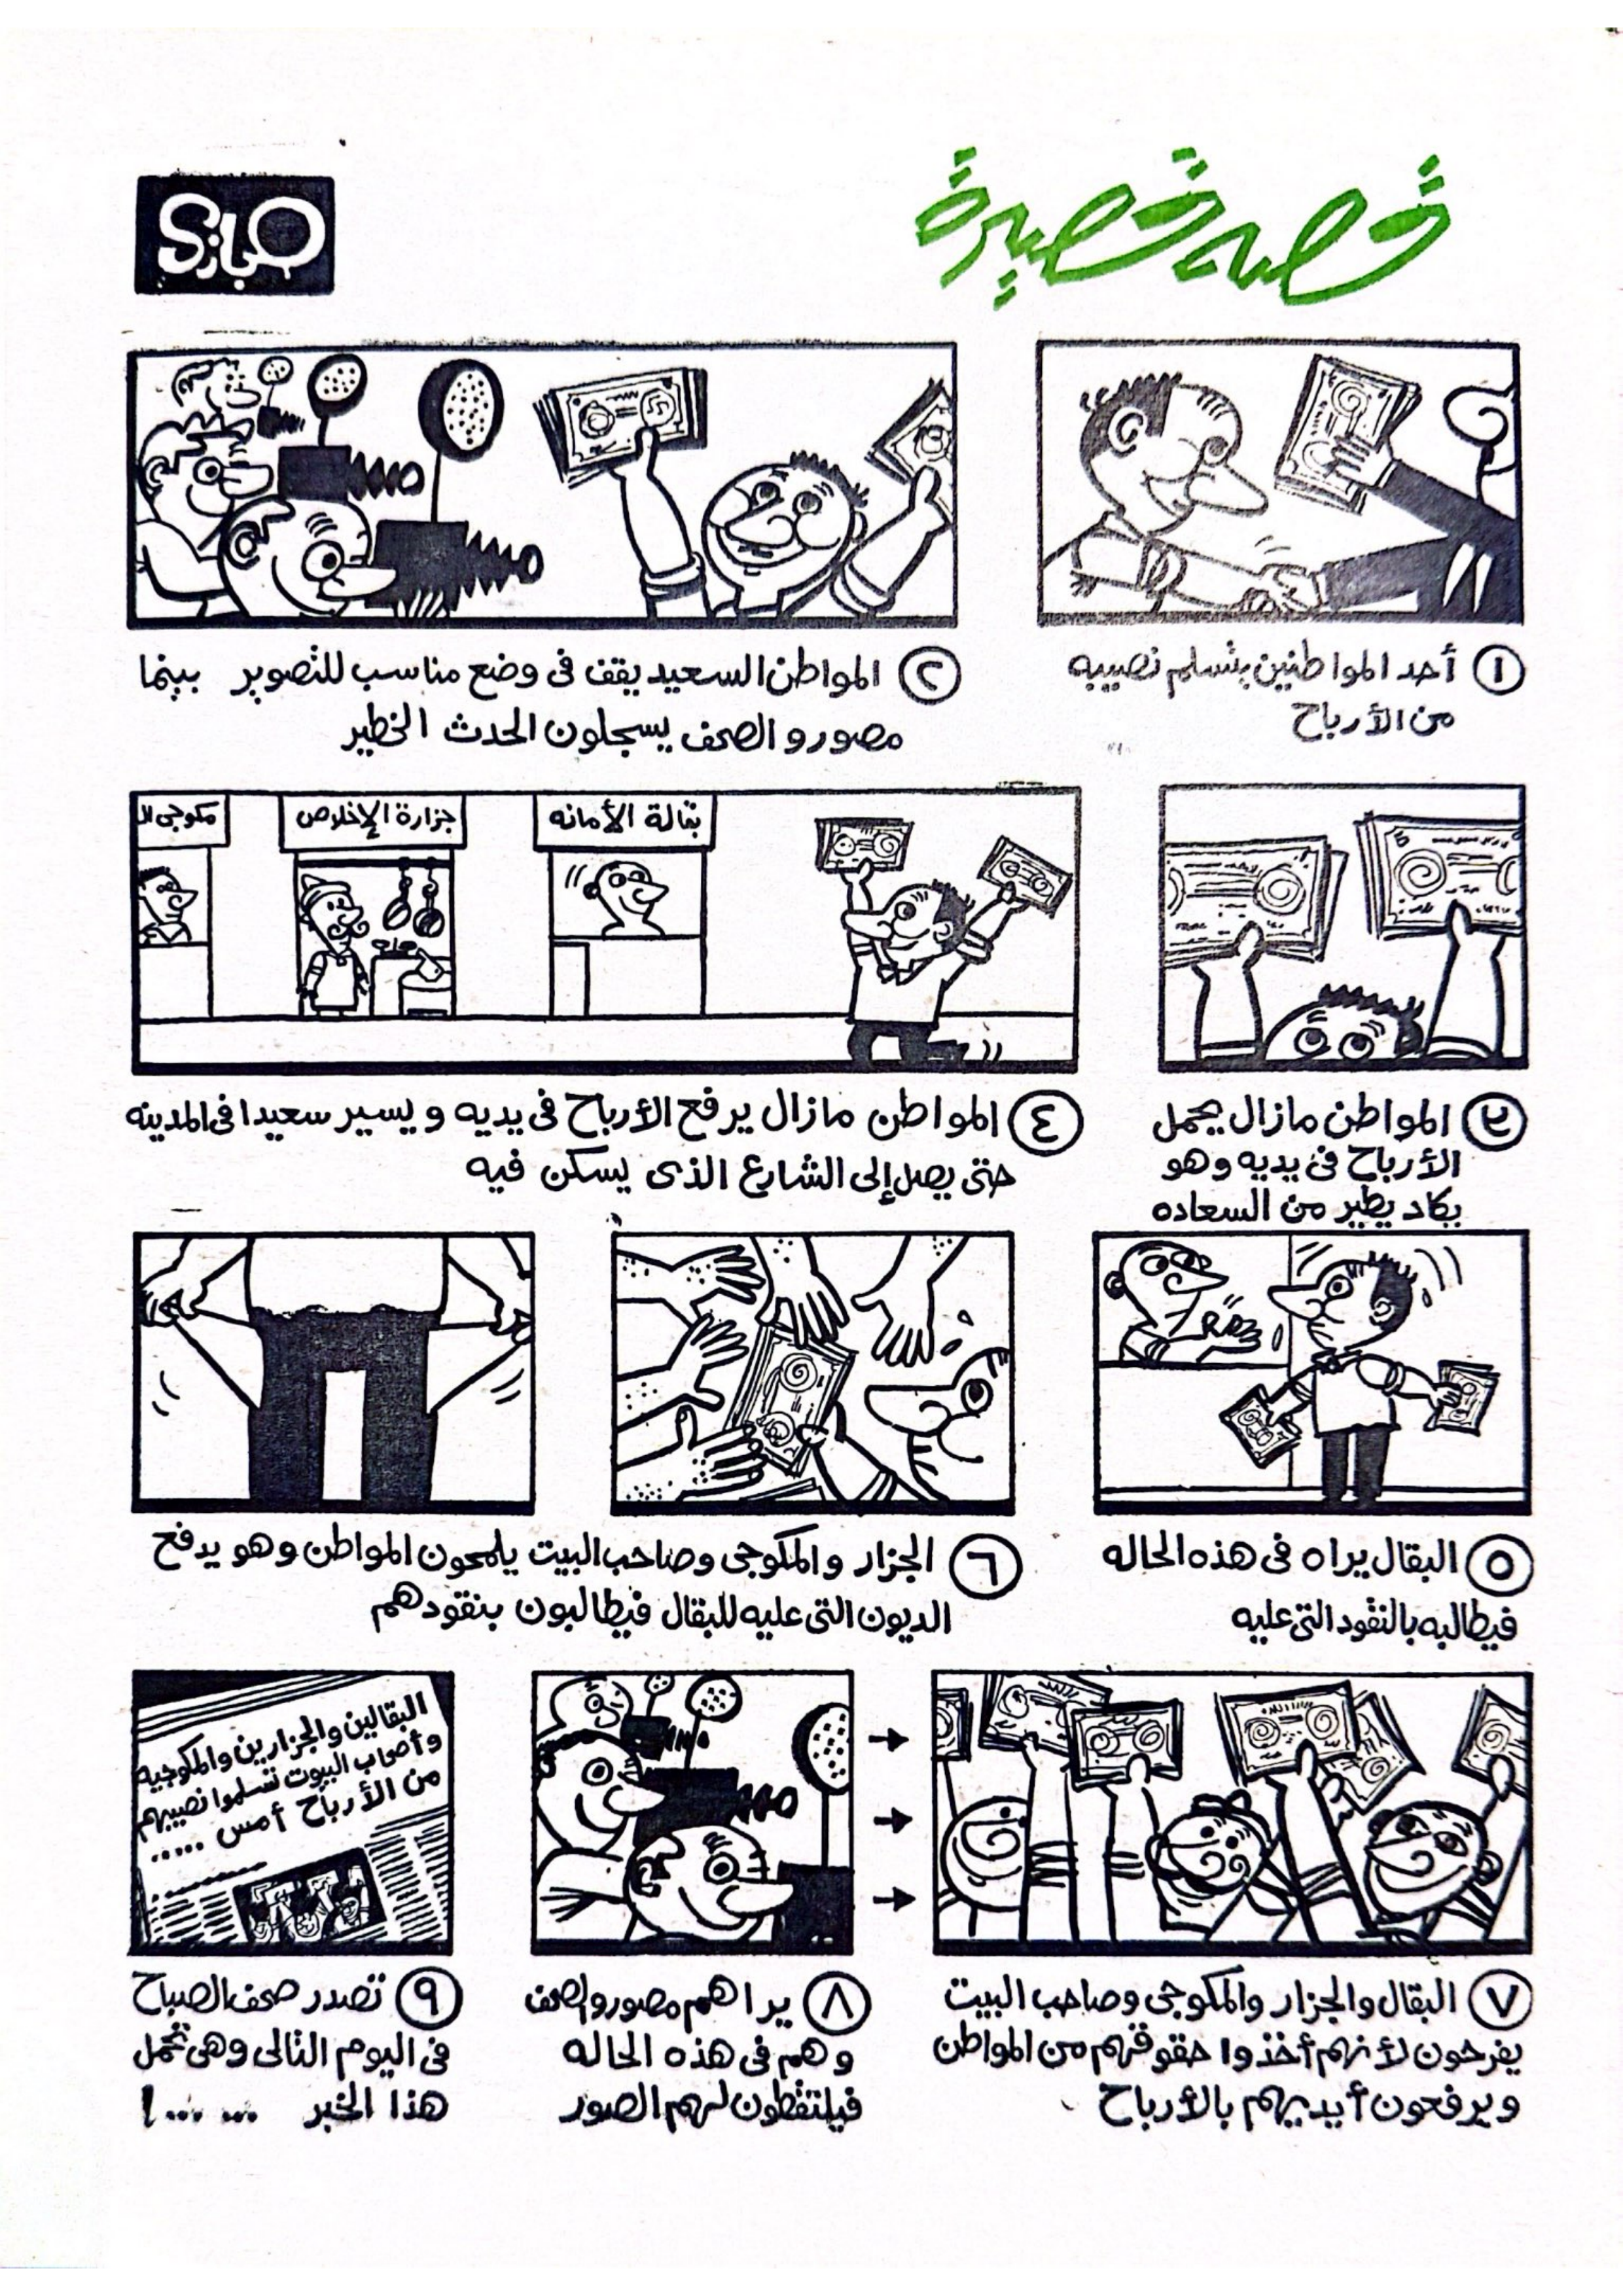 قصه قصيرة
حجازي
١ أحد المواطنين يتسلم نصيبه
من الأرباح
٢ المواطن السعيد يقف فى وضع مناسب للتصوير بينما
مصورو الصحف يسجلون الحدث الخطير
٣ المواطن مازال يحمل
الأرباح فى يديه وهو
يكاد يطير من السعاده
بقالة الأمانه
جزارة الإخلاص
مكوجى ال
٤ المواطن مازال يرفع الأرباح فى يديه ويسير سعيدا فى المدينه
حتى يصل إلى الشارع الذى يسكن فيه
٥ البقال يراه فى هذه الحاله
فيطالبه بالنقود التى عليه
٦ الجزار والمكوجى وصاحب البيت يلمحون المواطن وهو يدفع
الديون التى عليه للبقال فيطالبون بنقودهم
٧ البقال والجزار والمكوجى وصاحب البيت
يفرحون لأنهم أخذوا حقوقهم من المواطن
ويرفعون أيديهم بالأرباح
٨ يراهم مصورو الصحف
وهم فى هذه الحاله
فيلتقطون لهم الصور
البقالين والجزارين والمكوجيه
وأصحاب البيوت تسلموا نصيبهم
من الأرباح أمس .....
٩ تصدر صحف الصباح
فى اليوم التالى وهى تحمل
هذا الخبر ... ...!